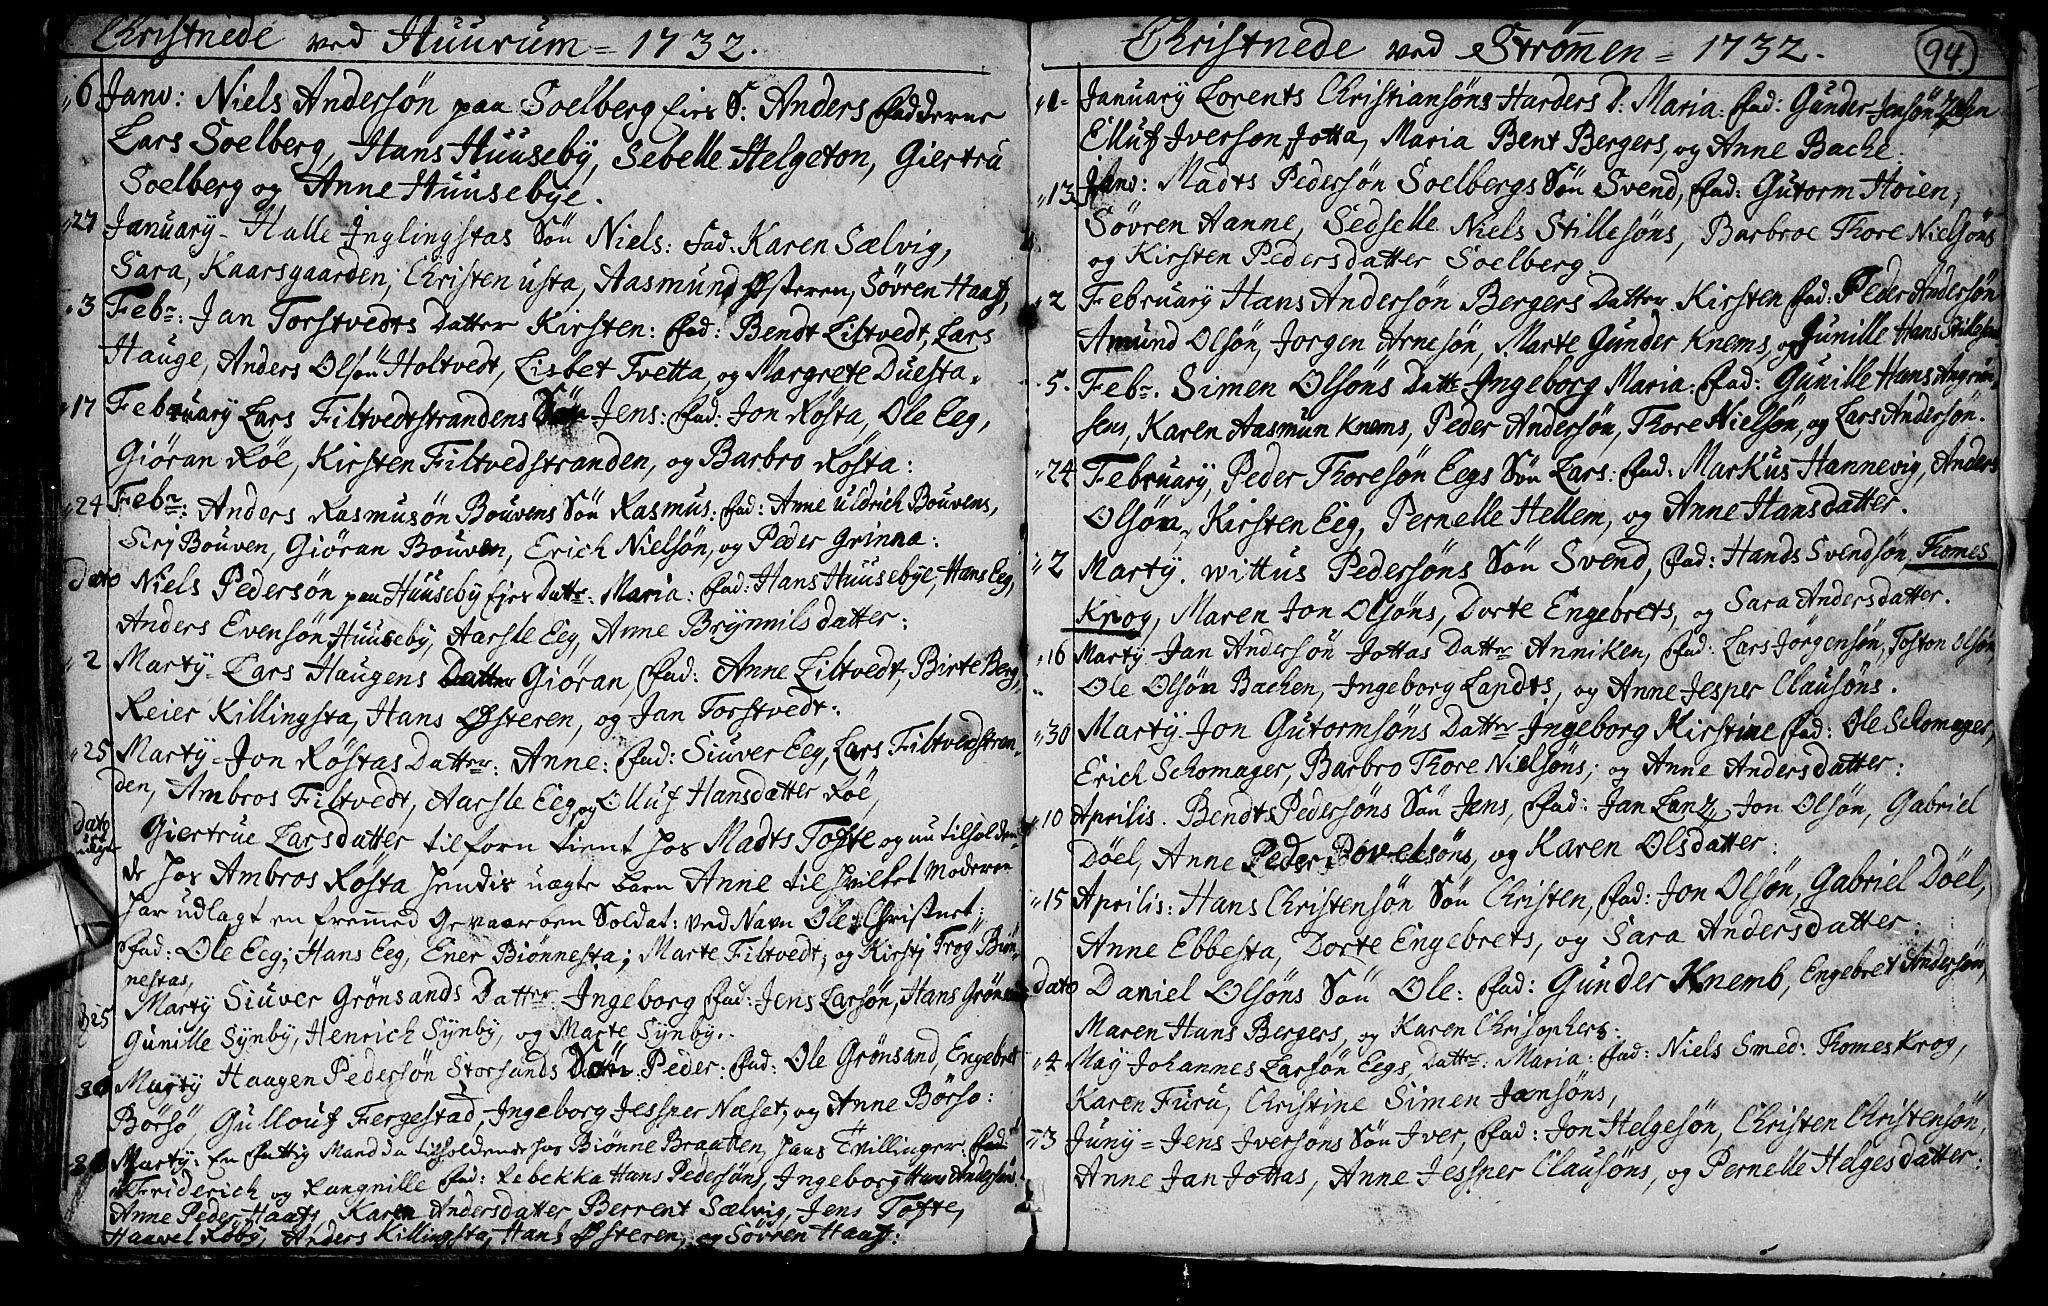 Christnede ved Huurum = 1732.
6 Janv: Niels Andersøn paa Soelberg Eies S: Anders Fadderne
Lars Soelberg, Hans Huuseby, Sebelle Helgeton, Giertru
Soelberg og Anne Huusebye.
27 January - Halle Inglingstas Søn Niels: Fad. Karen Sælvig,
Sara, Kaarsgaarden, Christen usta, Aasmund Østeren, Søvren Haaf,
3 Febr: Jan Torstvedts Datter Kirsten: Fad: Bendt Liltvedt, Lars
Hauge, Anders Olsøn Holtvedt, Lisbet Tvetta, og Margrete Duesta.
17 February Lars Filtvedtstrandens Søn Jens: Fad: Jon Røsta, Ole Eeg,
Giøran Røe, Kirsten Filtvedstranden, og Barbro Røsta:
24 Febr: Anders Rasmusøn Bouvens Søn Rasmus: Fad: Anne Uldrich Bouvens,
Sirj Bouven, Giøran Bouven, Erich Nielsøn, og Peder Grinna:
Dato Niels Pedersøn paa Huuseby Ejes Dattr: Maria: Fad: Hans Huusebye, Hans Eeg,
Anders Evensøn Huuseby, Aarsle Eeg, Anne Brynnils datter:
2 Marty - Lars Haugens Datter Giøran, Fad: Anne Liltvedt, Birte Berg,
Reier Killingsta, Hans Østeren, og Jan Torstvedt:
25 Marty - Jon Røstas Datter: Anne: Fad: Siuver Eeg, Lars Filtvedstran-
den, Ambros Filtvedt, Aarsle Eeg og Olluf Hansdatter Røe,
Dato uægte Giertrue Larsdatter tilforn tient hos Madts Tofte og nu tilholden-
de hos Ambros Røsta hendis uægte barn Anne til hvilket Moderen
har udlagt en fremmed Gevaorben Soldat: ved Navn Ole Christnet;
Fad: Ole Eeg; Hans Eeg, Ener Biønnesta; Marte Filtvedt; og Kirstj Trog Biøn-
nestas,
25 Marty Siuver Grønsands Datter Ingeborg Fad: Jens Larsøn, Hans Grønsand
Gunille Synby, Henrich Synby, og Marte Synby.
30 Marty Haagen Pedersøn Storsands Søn Peder: Fad: Ole Grønsand, Engebret
Børsø, Gullouf Fergestad, Ingeborg Jessper Næset, og Anne Børsø:
Marty: En Fattig Mand da tilholdende hos Biønne Braaten, hans Tvillinger Fad
Friderich og Rangnille Fad: Rebekka Hans Pedersøns, Ingeborg Hans Andersøns
Anne Peder Haafs Karen Andersdatter Berrent Sælvig, Jens Tofte,
Haavel Røby, Anders Killingsta, Hans Østeren, og Søvren Haaf:
Christnede ved Strømmen = 1732.
94.
1 January Lorents Christiansøns Harders D: Maria: Fad: Gunder Jensøn
Elluf Iversøn Jotta, Maria Bent Bergers, og Anne Bache.
13 Janv: Madts Pedersøn Soelbergs Søn Svend, Fad: Gutorm Høien,
Søvren Hanne, Sedselle Niels Stillesøns, Barbroe Thore Nielsøns
og Kirsten Pedersdatter Soelberg.
2 February Hans Andersøn Bergers Datter Kirsten Fad: Peder Andersøn
Amund Olsøn, Jorgen Arnesøn, Marte Gunder Knems og Junille Hans Stillesøns
5. Febr. Simen Olsøns Dattr Ingeborg Maria: Fad: Gunille Hans Angrim-
sens, Karen Aasmun Knems, Peder Andersøn, Thore Nielsøn, og Lars Andersøn.
24 February, Peder Thoresøn Eegs Søn Lars: Fad: Markus Hannevig, Anders
Olsøn, Kirsten Eeg, Pernelle Hellem, og Anne Hansdatter.
2 Marty. Wittus Pedersøns Søn Svend, Fad: Hands Svendsøn, Thomes
Krog, Maren Jon Olsøns, Dorte Engebrets, og Sara Andersdatter.
16 Marty Jan Andersøn Jottas Datter Anniken, Fad: Lars Jørgensøn, Toston Olsøn
Ole Olsøn Bachen, Ingeborg Landts, og Anne Jesper Clausøns.
30 Marty Jon Gutormsøns Datter Ingeborg Kirstine Fad: Ole Schomager,
Erich Schomager, Barbro Thore Nielsøns; og Anne Andersdatter:
10 Aprilis. Bendt Pedersøns Søn Jens, Fad: Jan Lantz, Jon Olsøn, Gabriel
Døel, Anne Peder Povelsøns, og Karen Olsdatter:
15 Aprilis: Hans Christensøn Søn Christen, Fad: Jon Olsøn, Gabriel Døel,
Anne Ebbesta, Dorte Engebrets, og Sara Andersdatter:
Dato Daniel Olsøns Søn Ole: Fad: Gunder Knemb, Engebret Andersøn,
Maren Hans Bergers, og Karen Chrisophers:
4 May Johannes Larsøn Eegs, Dattr: Maria: Fad: Niels Smed: Thomes Krog,
Karen Furu, Christine Simen Jansøns,
3 Juny = Jens Iversøns Søn Iver, Fad: Jon Helgesøn, Christen Christensøn,
Anne Jan Jottas, Anne Jessper Clausøns, og Pernelle Helgesdatter: